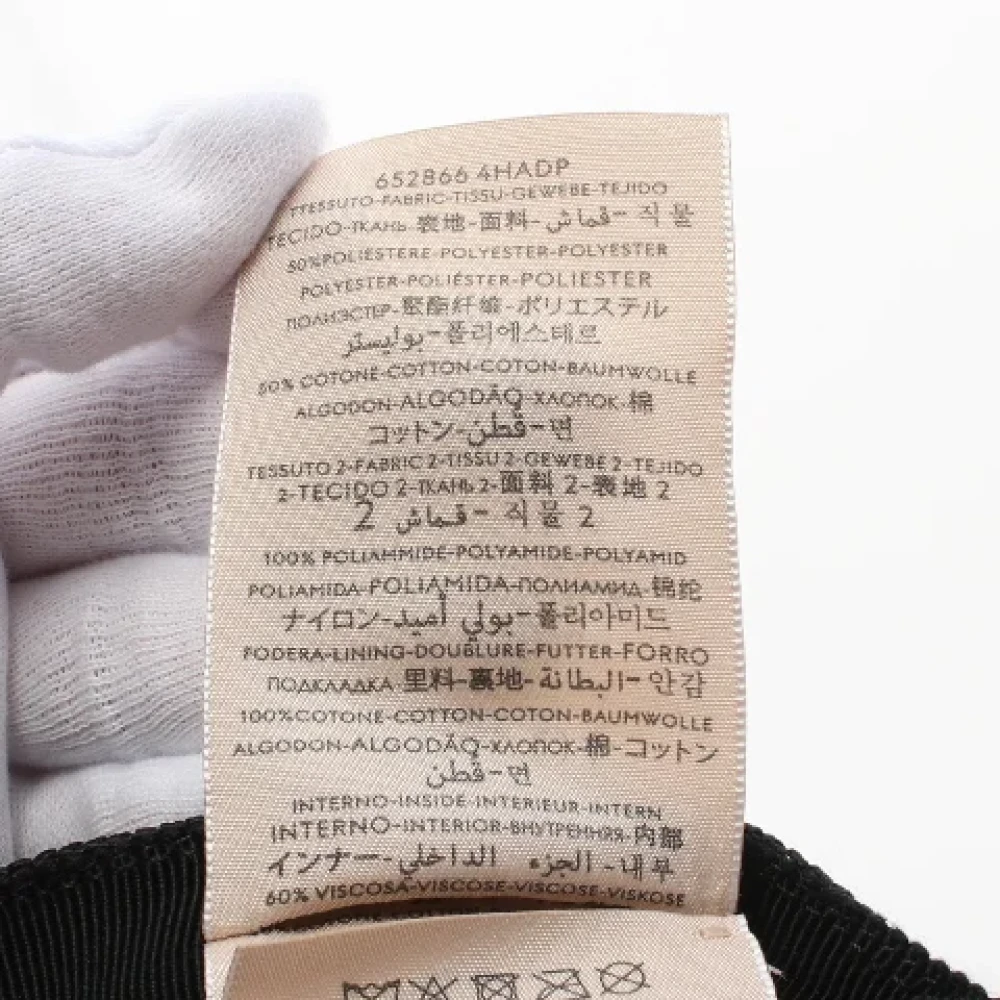 652866 4HADP
TTESSUTO-FABRIC-TISSU-GEWEBE-TEJIDO
TECIDO-ТКАНЬ 表地-面料-قماش-직물
50%POLIESTERE-POLYESTER-POLYESTER
POLYESTER-POLIÉSTER-POLIESTER
ПОЛИЭСТЕР-聚酯纤维-ポリエステル
بوليستر-폴리에스테르
50% COTONE-COTTON-COTON-BAUMWOLLE
ALGODON-ALGODÃO-ХЛОПОК-棉
コットン-قطن-면
TESSUTO 2-FABRIC 2-TISSU 2-GEWEBE 2-TEJIDO
2-TECIDO 2-ТКАНЬ 2-面料 2-表地 2
2 قماش-직물 2
100% POLIAMMIDE-POLYAMIDE-POLYAMID
POLIAMIDA-POLIAMIDA-ПОЛИАМИД-锦纶
ナイロン-بولي أميد-폴리아미드
FODERA-LINING-DOUBLURE-FUTTER-FORRO
ПОДКЛАДКА 里料-裏地-البطانة-안감
100%COTONE-COTTON-COTON-BAUMWOLLE
ALGODON-ALGODÃO-ХЛОПОК-棉-コットン
قطن-면
INTERNO-INSIDE-INTERIEUR-INTERN
INTERNO-INTERIOR-ВНУТРЕННЯЯ-内部
インナー-الجزء الداخلي-내부
60% VISCOSA-VISCOSE-VISCOSE-VISKOSE